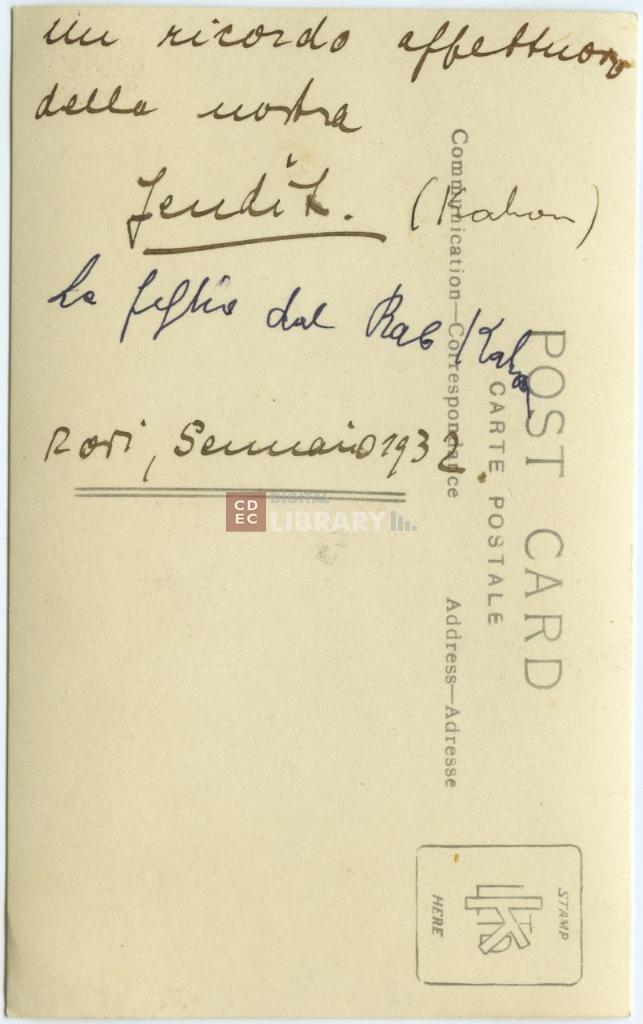 un ricordo affettuoso
della nostra
Jeudit. (Kahan)
la figlia del Rab Kahn
Rodi, Gennaio 193
CDEC DIGITAL LIBRARY
POST CARD
CARTE POSTALE
Communication—Correspondance
Address—Adresse
STAMP
HERE